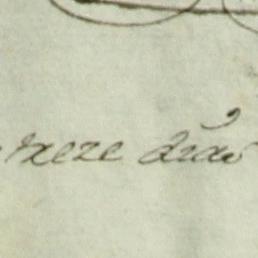 treze dias